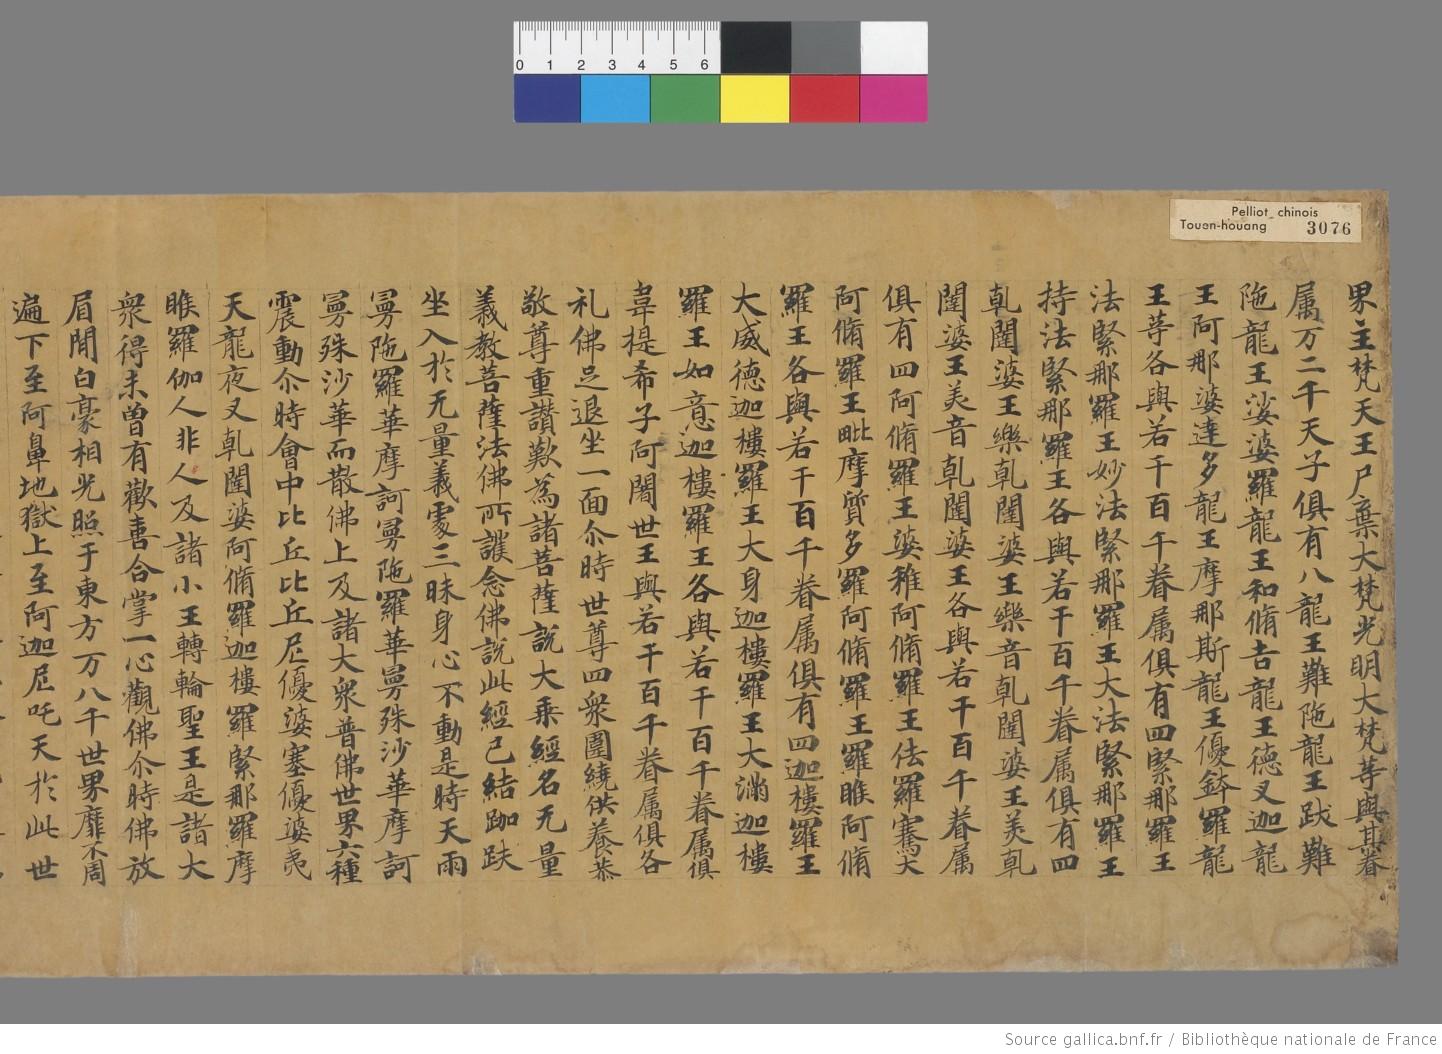 0 1 2 3 4 5 6
Pelliot chinois
Touen-houang 3076
界主梵天王尸棄大梵光明大梵䓁與其眷
属万二千天子俱有八龍王難陁龍王跋難
陁龍王娑婆羅龍王和脩吉龍王德叉迦龍
王阿那婆達多龍王摩那斯龍王優鉢羅龍
王䓁各與若干百千眷属俱有四緊那羅王
法緊那羅王妙法緊那羅王大法緊那羅王
持法緊那羅王各與若干百千眷属俱有四
乹闥婆王樂乹闥婆王樂音乹闥婆王美乹
闥婆王美音乹闥婆王各與若干百千眷属
俱有四阿脩羅王婆稚阿脩羅王佉羅騫大
阿脩羅王毗摩質多羅阿脩羅王羅睺阿脩
羅王各與若干百千眷属俱有四迦樓羅王
大威德迦樓羅王大身迦樓羅王大滿迦樓
羅王如意迦樓羅王各與若干百千眷属俱
韋提希子阿闍世王與若干百千眷属俱各
礼佛足退坐一面尒時世尊四衆圍繞供養恭
敬尊重讚歎為諸菩薩說大乘經名无量
義教菩薩法佛所護念佛說此經已結跏趺
坐入於无量義處三昧身心不動是時天雨
曼陁羅華摩訶曼陁羅華曼殊沙華摩訶
曼殊沙華而散佛上及諸大衆普佛世界六種
震動尒時會中比丘比丘尼優婆塞優婆夷
天龍夜叉乹闥婆阿脩羅迦樓羅緊那羅摩
睺羅伽人非人及諸小王轉輪聖王是諸大
衆得未曾有歡喜合掌一心觀佛尒時佛放
眉間白豪相光照于東方万八千世界靡不周
遍下至阿鼻地獄上至阿迦尼吒天於此世
Source gallica.bnf.fr / Bibliothèque nationale de France